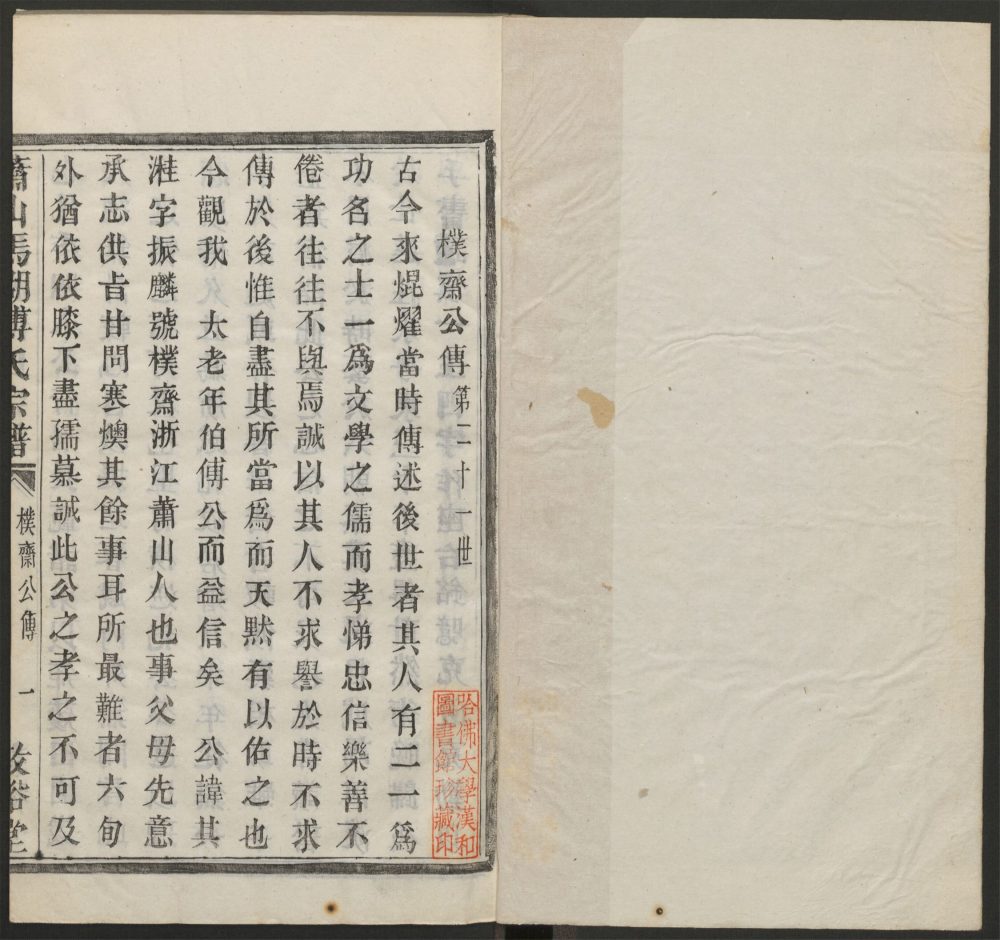 樸齋公傳第二十一世
古今來焜燿當時傳述後世者其人有二一爲
功名之士一爲文學之儒而孝悌忠信樂善不
倦者往往不與焉誠以其人不求譽於時不求
傳於後惟自盡其所當爲而天黙有以佑之也
今觀我 太老年伯傅公而益信矣 公諱其
溎字振麟號樸齋浙江蕭山人也事父母先意
承志供旨甘問寒燠其餘事耳所最難者六旬
外猶依依膝下盡孺慕誠此公之孝之不可及
蕭山馬湖傅氏宗譜 樸齋公傳 一
哈佛大學漢和
圖書館珍藏印